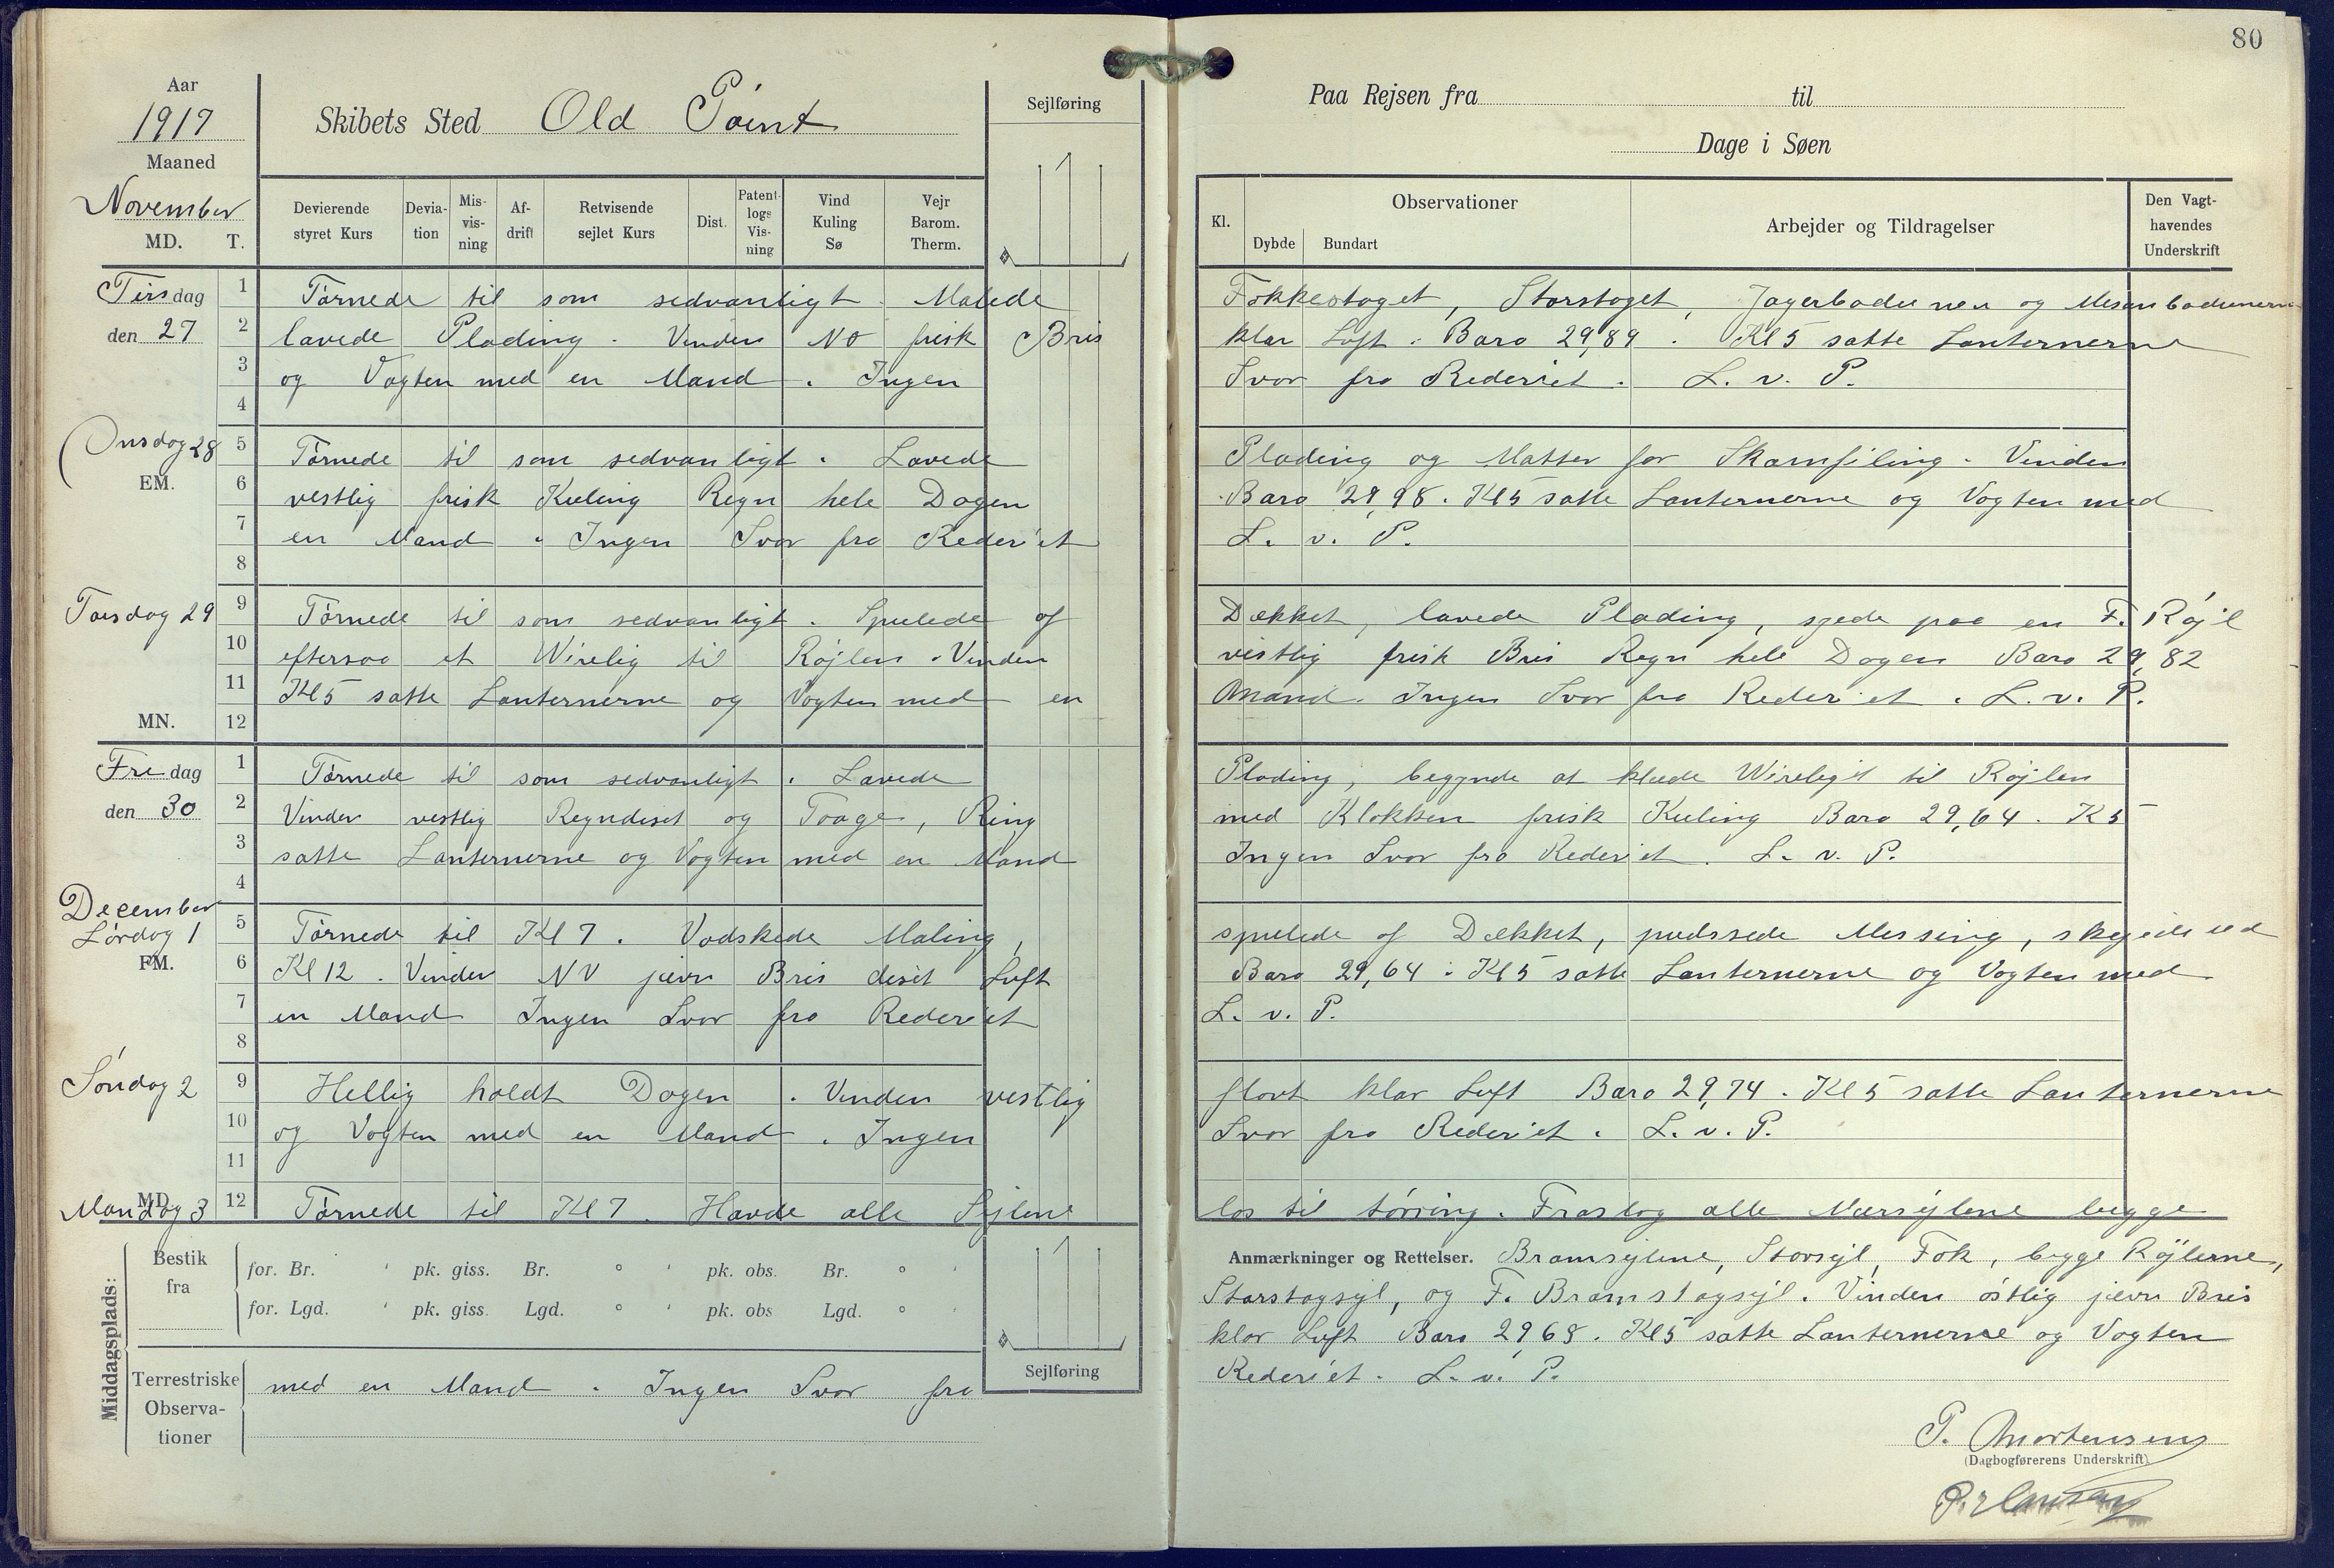 80
Aar
1917
Maaned
November
MD. T.
Skibets Sted Old Point
Sejlføring
Paa Rejsen fra til
Dage i Søen
Devierende styret Kurs
Devia-tion
Mis-vis-ning
Af-drift
Retvisende sejlet Kurs
Dist.
Patent-logs Vis-ning
Vind Kuling Sø
Vejr Barom. Therm.
Kl.
Observationer
Dybde Bundart
Arbejder og Tildragelser
Den Vagt-havendes Underskrift
Tirsdag
den 27
1 2 3 4
Tørnede til som sedvanligt. Malede Fokkestaget, Storstaget, Jagerbadunen og Mesanbadunerne
lavede Plading. Vinden NO frisk Bris klar Luft. Baro 29,89. Kl 5 satte Lanternerne
og Vagten med en Mand. Ingen Svar fra Rederiet. L. v. P.
Onsdag 28
EM.
5 6 7 8
Tørnede til som sedvanligt. Lavede Plading og Matter for Skamfiling. Vinden
vestlig frisk Kuling Regn hele Dagen Baro 29,98. Kl 5 satte Lanternerne og Vagten med
en Mand. Ingen Svar fra Rederiet L. v. P.
Torsdag 29
MN.
9 10 11 12
Tørnede til som sedvanligt. Spulede af Dækket, lavede Plading, syede paa en F. Røjl
eftersaa et Wirelig til Røjlen. Vinden vestlig frisk Bris Regn hele Dagen Baro 29,82
Kl 5 satte Lanternerne og Vagten med en Mand. Ingen Svar fra Rederiet. L. v. P.
Fredag
den 30
1 2 3 4
Tørnede til som sedvanligt. Lavede Plading, begynde at klæde Wireligit til Røjlen
Vinden vestlig Regndiset og Taage, Ring med Klokken frisk Kuling Baro 29,64. K 5
satte Lanternerne og Vagten med en Mand Ingen Svar fra Rederiet. L. v. P.
December
Lørdag 1
FM.
5 6 7 8
Tørnede til Kl 7. Vadskede Maling, spulede af Dækket, pudssede Messing, skejede ud
Kl 12. Vinden NV jevn Bris diset Luft Baro 29,64. Kl 5 satte Lanternerne og Vagten med
en Mand Ingen Svar fra Rederiet L. v. P.
Søndag 2
9 10 11
Hellig holdt Dagen. Vinden vestlig flovt klar Luft Baro 29,74. Kl 5 satte Lanternerne
og Vagten med en Mand. Ingen Svar fra Rederiet. L. v. P.
MD.
Mandag 3
12
Tørnede til Kl 7. Havde alle Sejlene los til tørring. Fraslog alle Mærsejlene begge
Anmærkninger og Rettelser. Bramsejlene, Storsejl, Fok, begge Røjlerne,
Storstagsejl, og F. Bramstagsejl. Vinden østlig jevn Bris
klar Luft Baro 29,68. Kl 5 satte Lanternerne og Vagten
med en Mand. Ingen Svar fra Rederiet. L. v. P.
Middagsplads:
Bestik fra
for. Br. ' pk. giss. Br. ° ' pk. obs. Br. ° '
for. Lgd. ' pk. giss. Lgd. ° ' pk. obs Lgd. ° '
Terrestriske Observa-tioner
Sejlføring
P. Mortensen
(Dagbogførerens Underskrift)